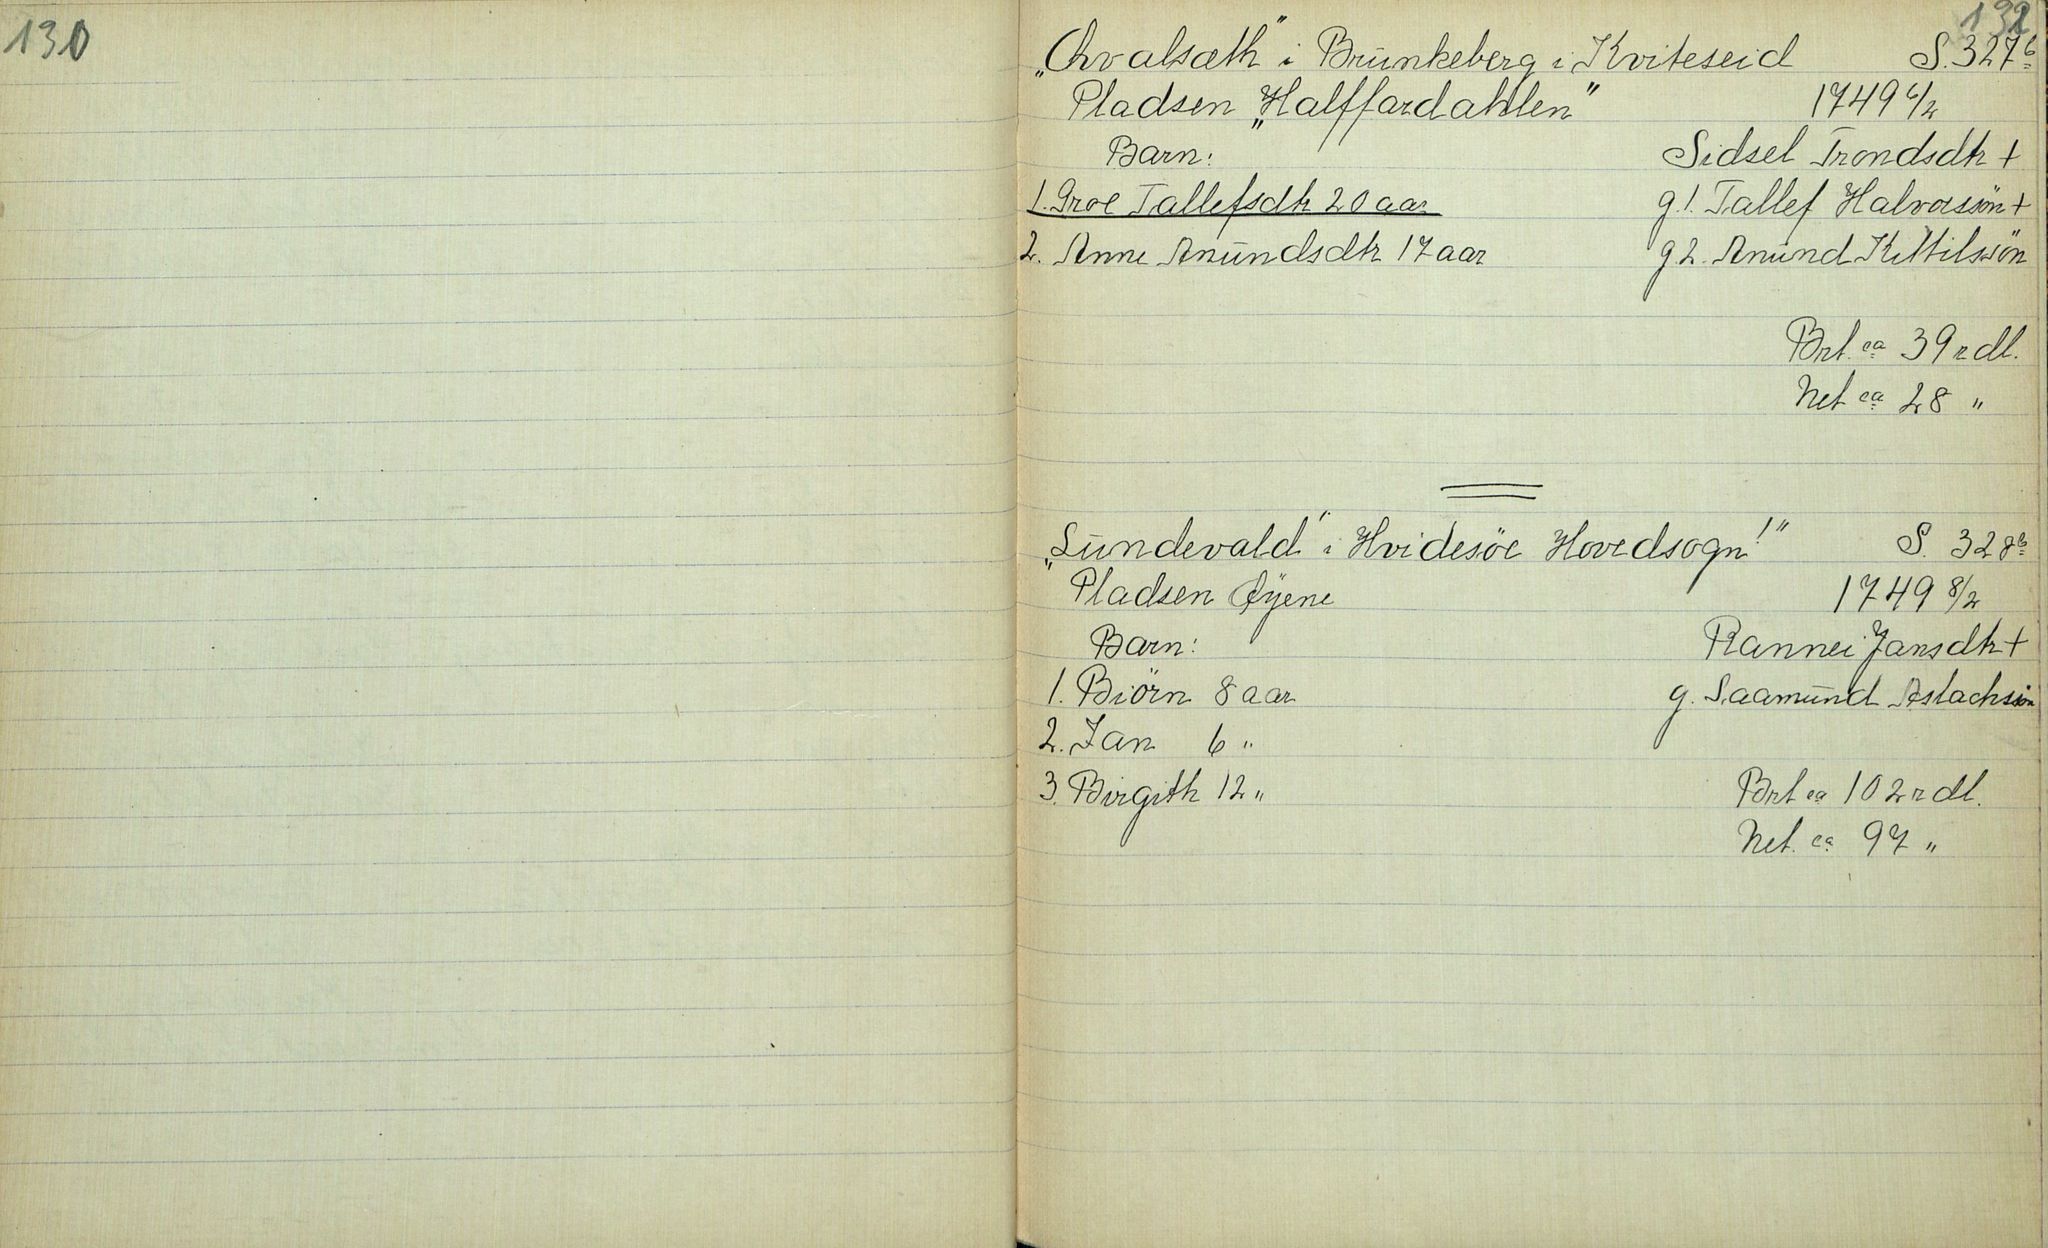 130
131
„Hvalsæth" i Brunkeberg i Kviteseid S. 327b
Pladsen „Halffardahlen" 1749 6/2
Barn: Sidsel Trondsdtr +
1. Groe Tallefsdtr 20 aar g.1. Tallef Halvorssön +
2. Anne Anundsdtr 17 aar g.2. Anund Kittilssön
Brt. ca 39 rdl.
Net ca 28 "
„Lundevald" i Hvidesöe Hovedsogn!" S. 328b
Pladsen Öyene 1749 8/2
Barn: Rannei Jansdtr +
1. Biörn 8 aar g. Saamund Aslachsön
2. Jan 6 "
3. Birgith 12 " Brt ca 102 rdl.
Net. ca 97 "